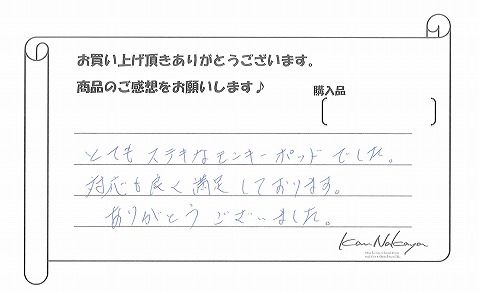 お買い上げ頂きありがとうございます。
商品のご感想をお願いします♪
購入品
とても ステキなモンキーポッドでした。
対応も良く満足しております。
ありがとうございました。
Kan Nakaya